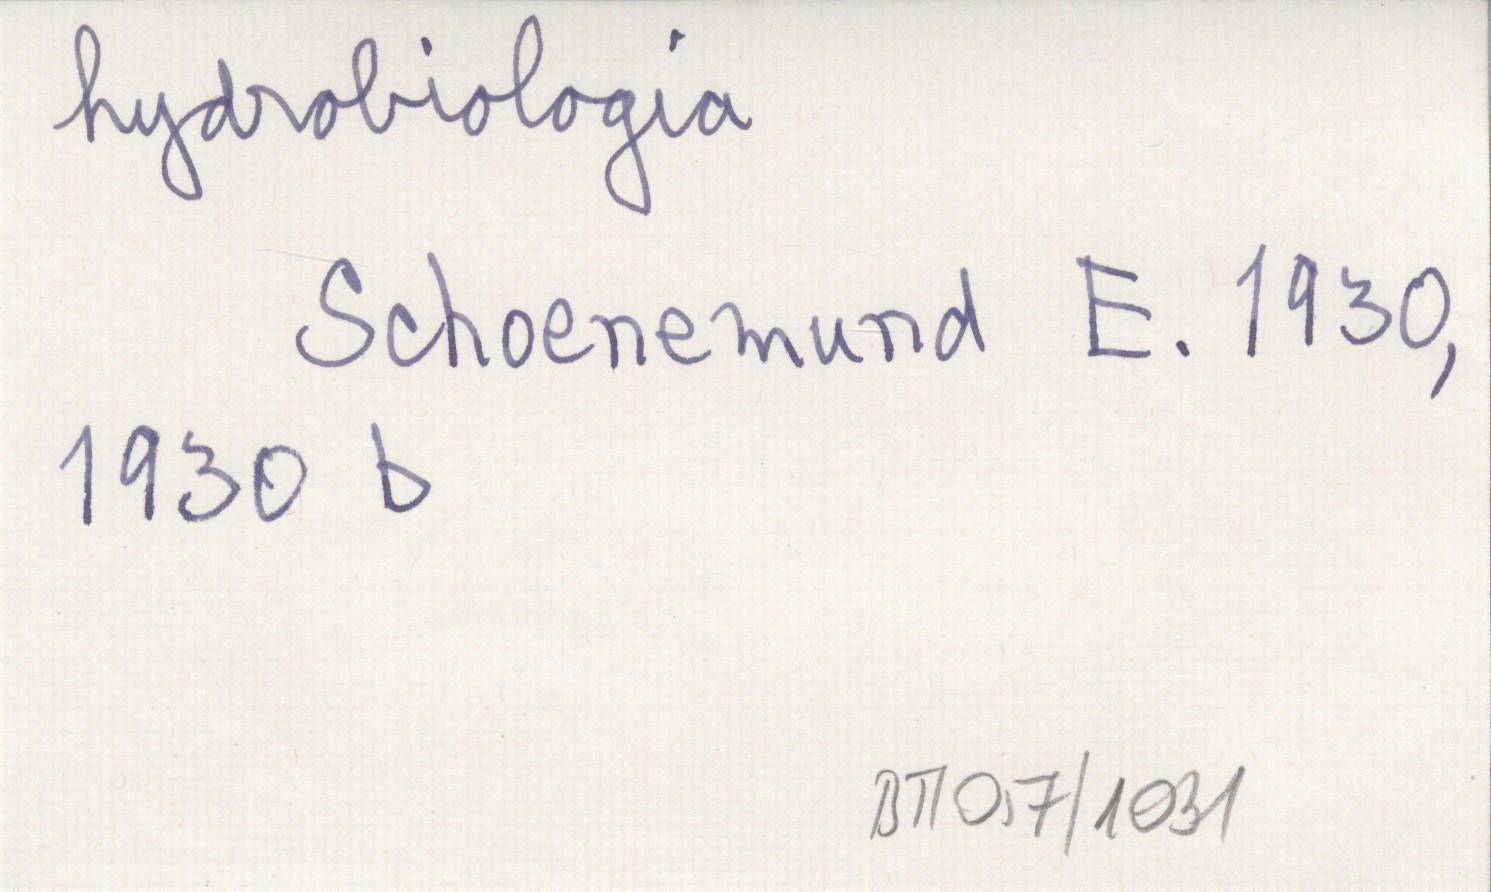 hydrobiologia
Schoenemund E. 1930,
1930 b
ВП 0,7/1031